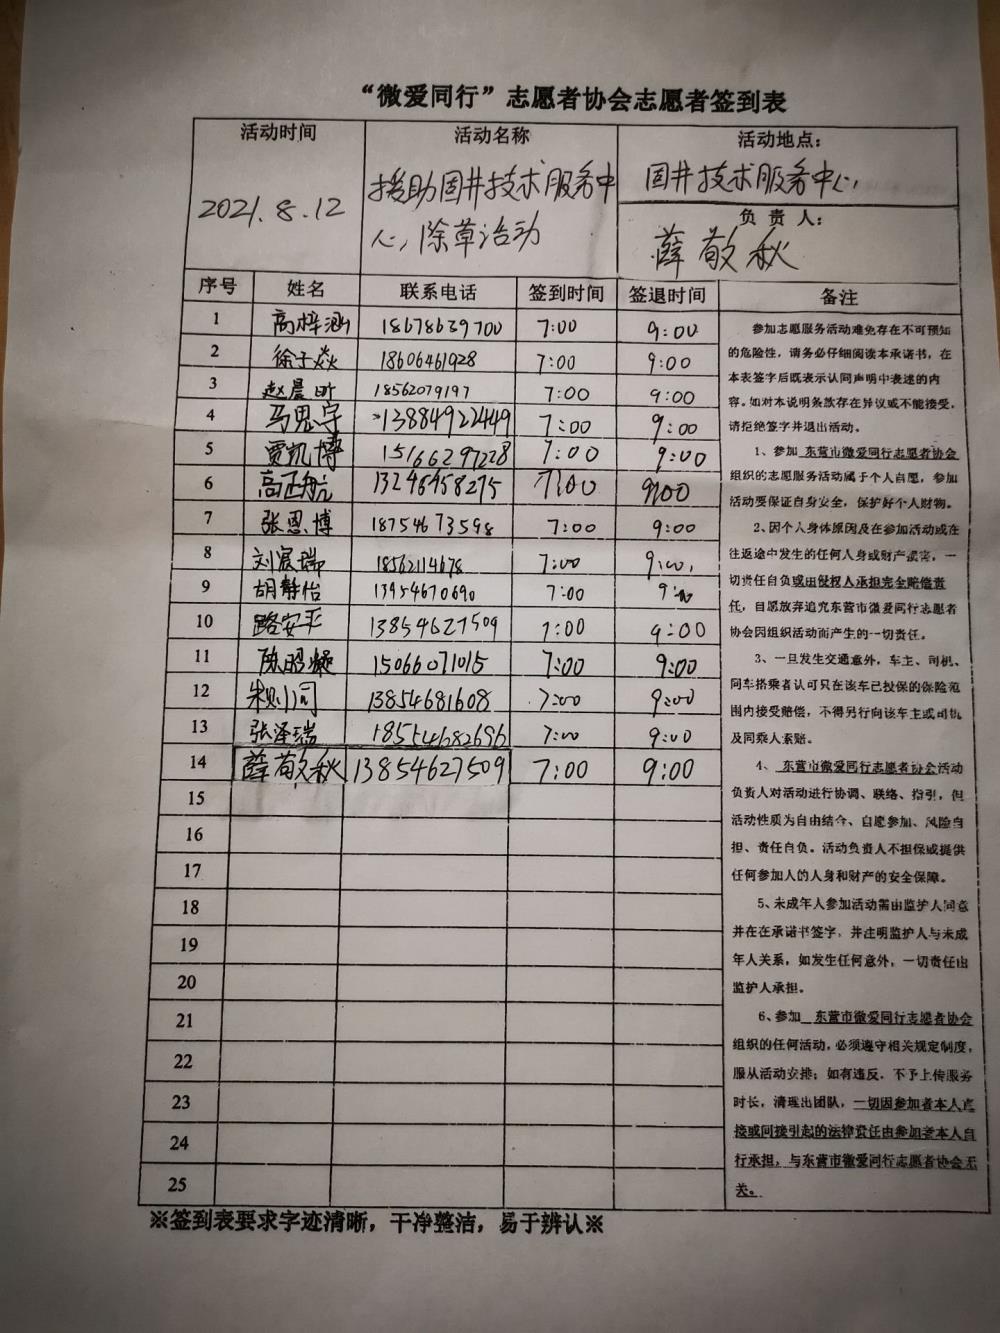 “微爱同行”志愿者协会志愿者签到表
活动时间 活动名称 活动地点：
2021.8.12 援助固井技术服务中心，除草活动 固井技术服务中心，
负责人：
薛敬秋
序号 姓名 联系电话 签到时间 签退时间 备注
1 高梓涵 18678639700 7:00 9:00
2 徐子焱 18606461928 7:00 9:00
3 赵晨昕 18562079197 7:00 9:00
4 马思宇 13884922449 7:00 9:00
5 贾凯博 15166297228 7:00 9:00
6 高正航 13246458275 7:00 9:00
7 张恩博 18754673598 7:00 9:00
8 刘宸瑞 18562114678 7:00 9:00
9 胡静怡 13954670690 7:00 9:00
10 路安平 13854627509 7:00 9:00
11 陈昭燚 15066071015 7:00 9:00
12 13854681608 7:00 9:00
13 张泽瑞 18554682696 7:00 9:00
14 薛敬秋 13854627509 7:00 9:00
15
16
17
18
19
20
21
22
23
24
25
参加志愿服务活动难免存在不可预知
的危险性，请务必仔细阅读本承诺书，在
本表签字后既表示认同声明中表述的内
容。如对本说明条款存在异议或不能接受，
请拒绝签字并退出活动。
1、参加 东营市微爱同行志愿者协会
组织的志愿服务活动属于个人自愿，参加
活动要保证自身安全，保护好个人财物。
2、因个人身体原因及在参加活动或在
往返途中发生的任何人身或财产损害，一
切责任自负或由侵权人承担完全赔偿责
任，自愿放弃追究东营市微爱同行志愿者
协会因组织活动而产生的一切责任。
3、一旦发生交通意外，车主、司机、
同车搭乘者认可只在该车已投保的保险范
围内接受赔偿，不得另行向该车主或司机
及同乘人索赔。
4、 东营市微爱同行志愿者协会活动
负责人对活动进行协调、联络、指引，但
活动性质为自由结合、自愿参加、风险自
担、责任自负。活动负责人不担保或提供
任何参加人的人身和财产的安全保障。
5、未成年人参加活动需由监护人同意
并在在承诺书签字，并注明监护人与未成
年人关系，如发生任何意外，一切责任由
监护人承担。
6、参加 东营市微爱同行志愿者协会
组织的任何活动，必须遵守相关规定制度，
服从活动安排；如有违反，不予上传服务
时长，清理出团队，一切因参加者本人直
接或间接引起的法律责任由参加者本人自
行承担，与东营市微爱同行志愿者协会无
关。
※签到表要求字迹清晰，干净整洁，易于辨认※